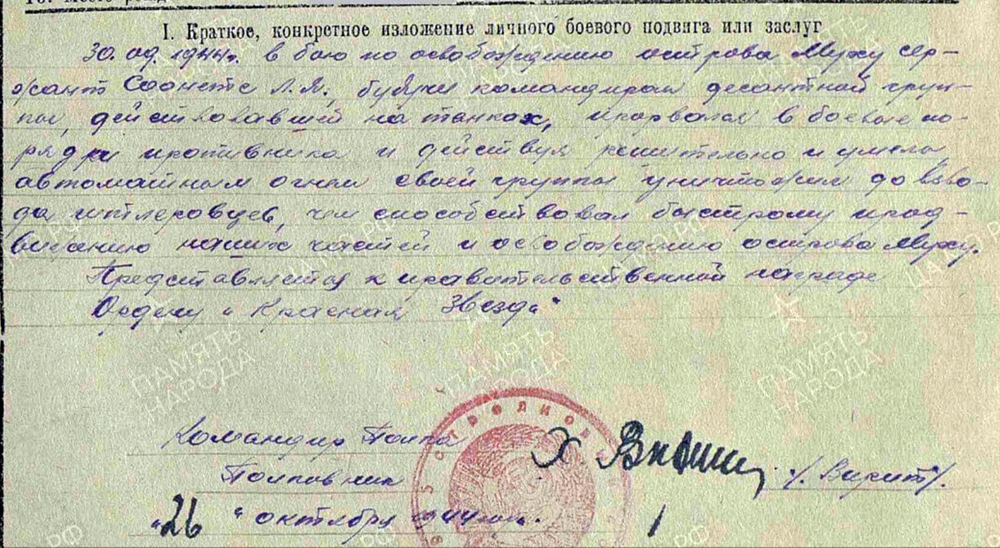 I. Краткое, конкретное изложение личного боевого подвига или заслуг
30.09.1944г. в бою по освобождению острова Муху сер-
жант Соонетс Л.Я., будучи командиром десантной груп-
пы, действовавшей на танках, прорвался в боевые по-
рядки противника и действуя решительно и умело
автоматным огнем своей группы уничтожил до взво-
да гитлеровцев, чем способствовал быстрому прод-
виганию наших частей и освобождению острова Муху.
Представляется к правительственной награде
Ордену "Красная Звезда"
Командир Полка
Полковник
"26" октября 1944
ПАМЯТЬ НАРОДА